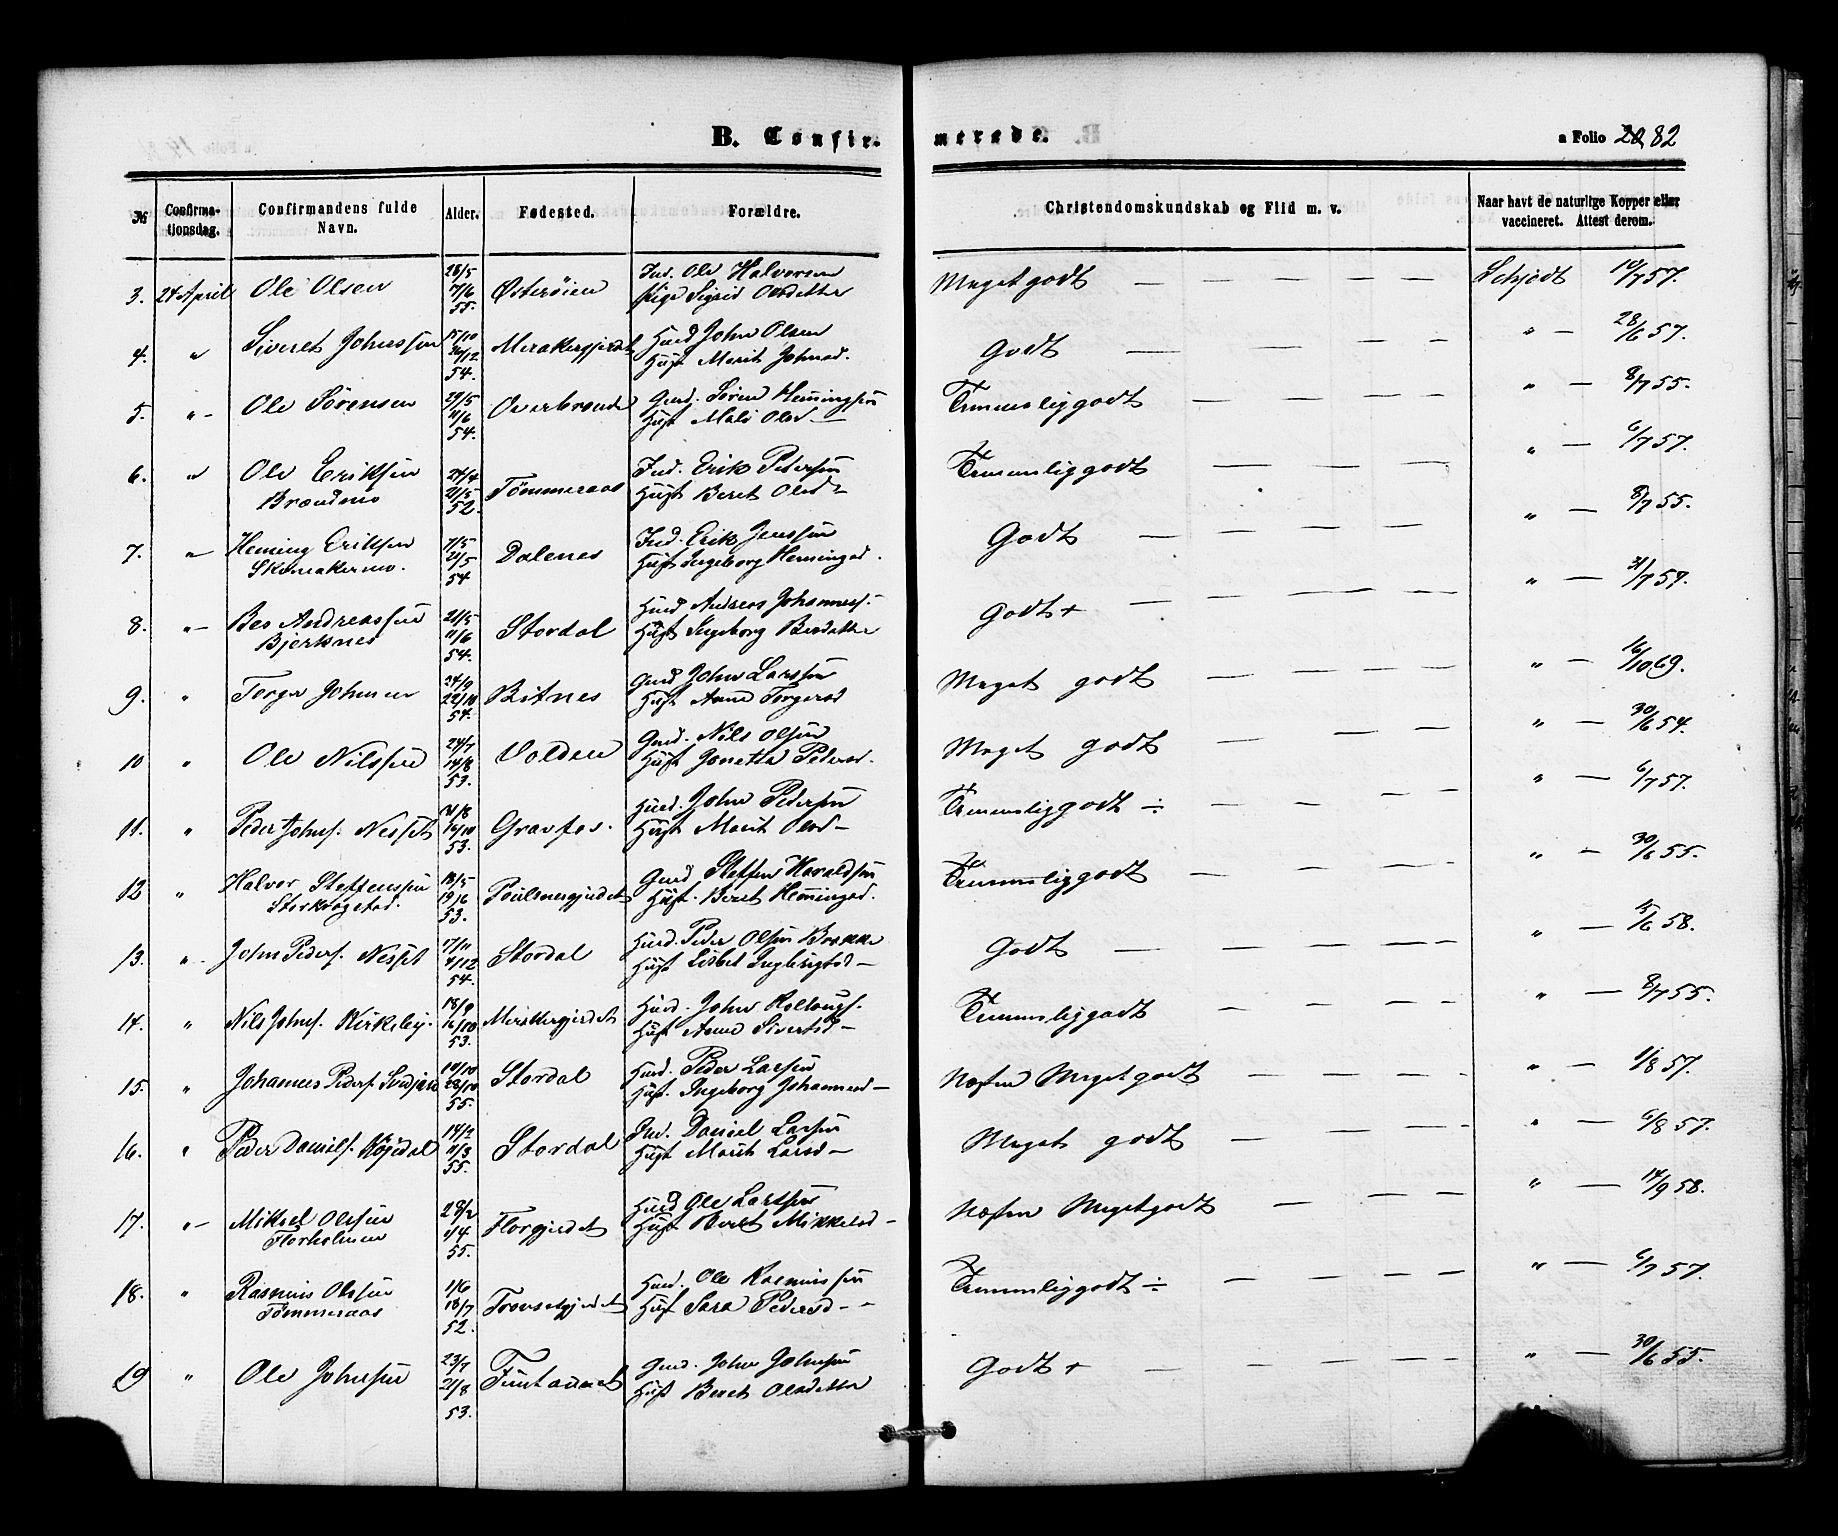 B. Confirmerede.
a Folio 82
№
Confirmationsdag.
Confirmandens fulde Navn.
Alder.
Fødested.
Forældre.
Christendomskundskab og Flid m. v.
Naar havt de naturlige Kopper eller vaccineret. Attest derom.
3. 24 April Ole Olsen 28/5 7/6 55. Østerøien Ind. Ole Halvorsen
Pige Sigrid Olsdatter
Meget godt — Schjødt 10/7 57.
4. " Siveret Johnssen 15/10 26/12 54. Merakergjerdet Huusd John Olsen
Hust Marit Johnsd.
Godt — " — 28/6 57.
5. " Ole Sörensen 29/5 11/6 54. Overbrende Gmd. Sören Hemmingsen
Hust Mali Olsd —
Temmelig godt — " — 8/7 55.
6. " Ole Eriksen
Brændmo 24/4 21/5 52. Tömmeraas Ind. Erik Pedersen
Hust Beret Olsd —
Temmelig godt — " — 6/7 57.
7. " Heming Eriksen
Skomakermo. 7/5 21/5 54 Dalenes Ind. Erik Jenssen
Hust Ingeborg Hemingsd.
Godt — " — 8/7 55.
8. " Bes Andreassen
Bjerknes 21/5 11/6 54. Stordal Huusd Andreas Johannesf.
Hust Ingeborg Besdatter
Godt + — " — 31/7 57.
9. " Torger Johnsen 24/9 22/10 54. Bitnes Gmd John Larssen
Hust Anne Torgersd
Meget godt — " — 16/10 69.
10 " Ole Nilssen 24/7 14/8 53. Volden Gmd. Nils Olsen
Hust Jonetta Pedersd.
Meget godt — " — 30/6 54.
11. " Peder Johnsf. Nesset 21/8 16/10 53. Gravfos. Huusd. John Pedersen
Hust Marit Olsd —
Temmelig godt ÷ — " — 6/7 57.
12 " Halvor Steffenssen
Storkrogstad. 18/5 19/6 53. Poulsnesgjerdet Gmd Steffen Haraldsen
Hust. Beret Hemmingsd.
Temmelig godt — " — 30/6 55.
13. " John Pedersf. Nesset 17/11 4/12 54. Stordal Huusd. Peder Olsen Brække
Hust Lisbet Ingebrigtsd —
Godt — " — 15/6 58.
14. " Nils Johnsf. Kirkeby. 18/9 16/10 53. Merakergjerdet Huusd. John Rollaugsf.
Hust Anne Sivertsd —
Temmelig godt — " — 8/7 55.
15. " Johannes Pedersf 14/10 28/10 55. Stordal Huusd. Peder Larsen
Hust. Ingeborg Johannesd —
Næsten Meget godt — " — 1/8 57.
16. " Peder Danielsf. 14/2 11/3 55. Stordal Ind. Daniel Larsen
Hust Marit Larsd —
Meget godt — " — 6/8 57.
17. " Mikkel Olssen
Florholmen 28/2 1/4 55. Florgjerdet Huusd Ole Larssen
Hust Beret Mikkelsd —
Næsten Meget godt — " — 14/9 58.
18. " Rasmus Olssen
Tömmeraas 1/6 18/7 52. Huusd. Ole Rasmussen
Hust Sara Pedersd —
Temmelig godt ÷ — " — 6/7 57.
19 " Ole Johnsen 23/7 21/8 53. Funtaunet Gmd. John Johnsen
Hust Beret Olsdatter
Godt + — " — 30/6 55.